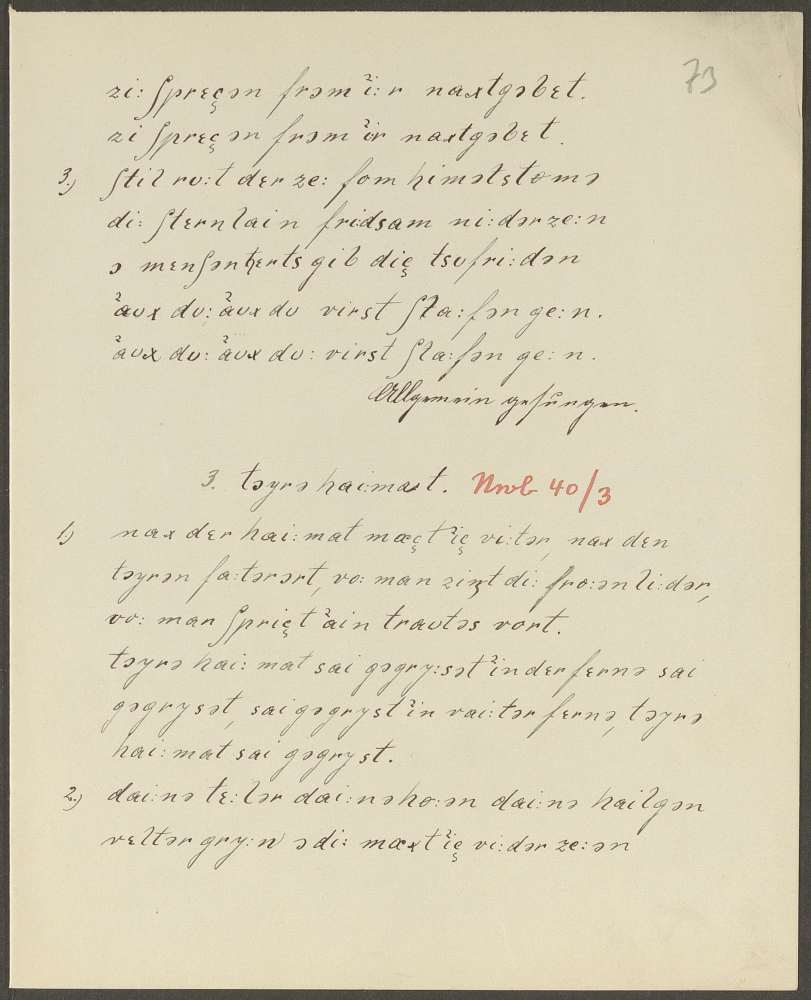 73
zi: ʃprɛçən frɔm ʾi:r naxtgəbɛt.
zi ʃprɛçən frɔm ʾir naxtgəbɛt.
3.) ʃtil ru:t dɛr ze: fɔm himəlstɔmə
di: ʃtɛrnlain fridsam ni:dərze:n
ɔ mɛnʃənhɛrts gib diç tsufri:dən
ʾaux du: ʾaux du virst ʃla:fən ge:n.
ʾaux du: ʾaux du: virst ʃla:fən ge:n.
Allgemein gesungen.
3. tɔyrə hai:mat. Nwb 40/3
1.) nax dɛr hai:mat mœçt ʾiç vi:tər, nax dɛn
tɔyrən fa:tərɔrt, vo: man ziŋt di: fro:ən li:dər,
vo: man ʃpriçt ʾain trautəs vort.
tɔyrə hai:mat sai gəgry:sət ʾin dɛr fɛrnə sai
gəgrysət, sai gəgryst ʾin vai:tər fɛrnə, tɔyrə
hai:mat sai gəgryst.
2.) dai:nə tɛ:lər dai:nə ho:ən dai:nə hailgən
vɛltər gry:n ɔ di: mœxt ʾiç vi:dər ze:ən